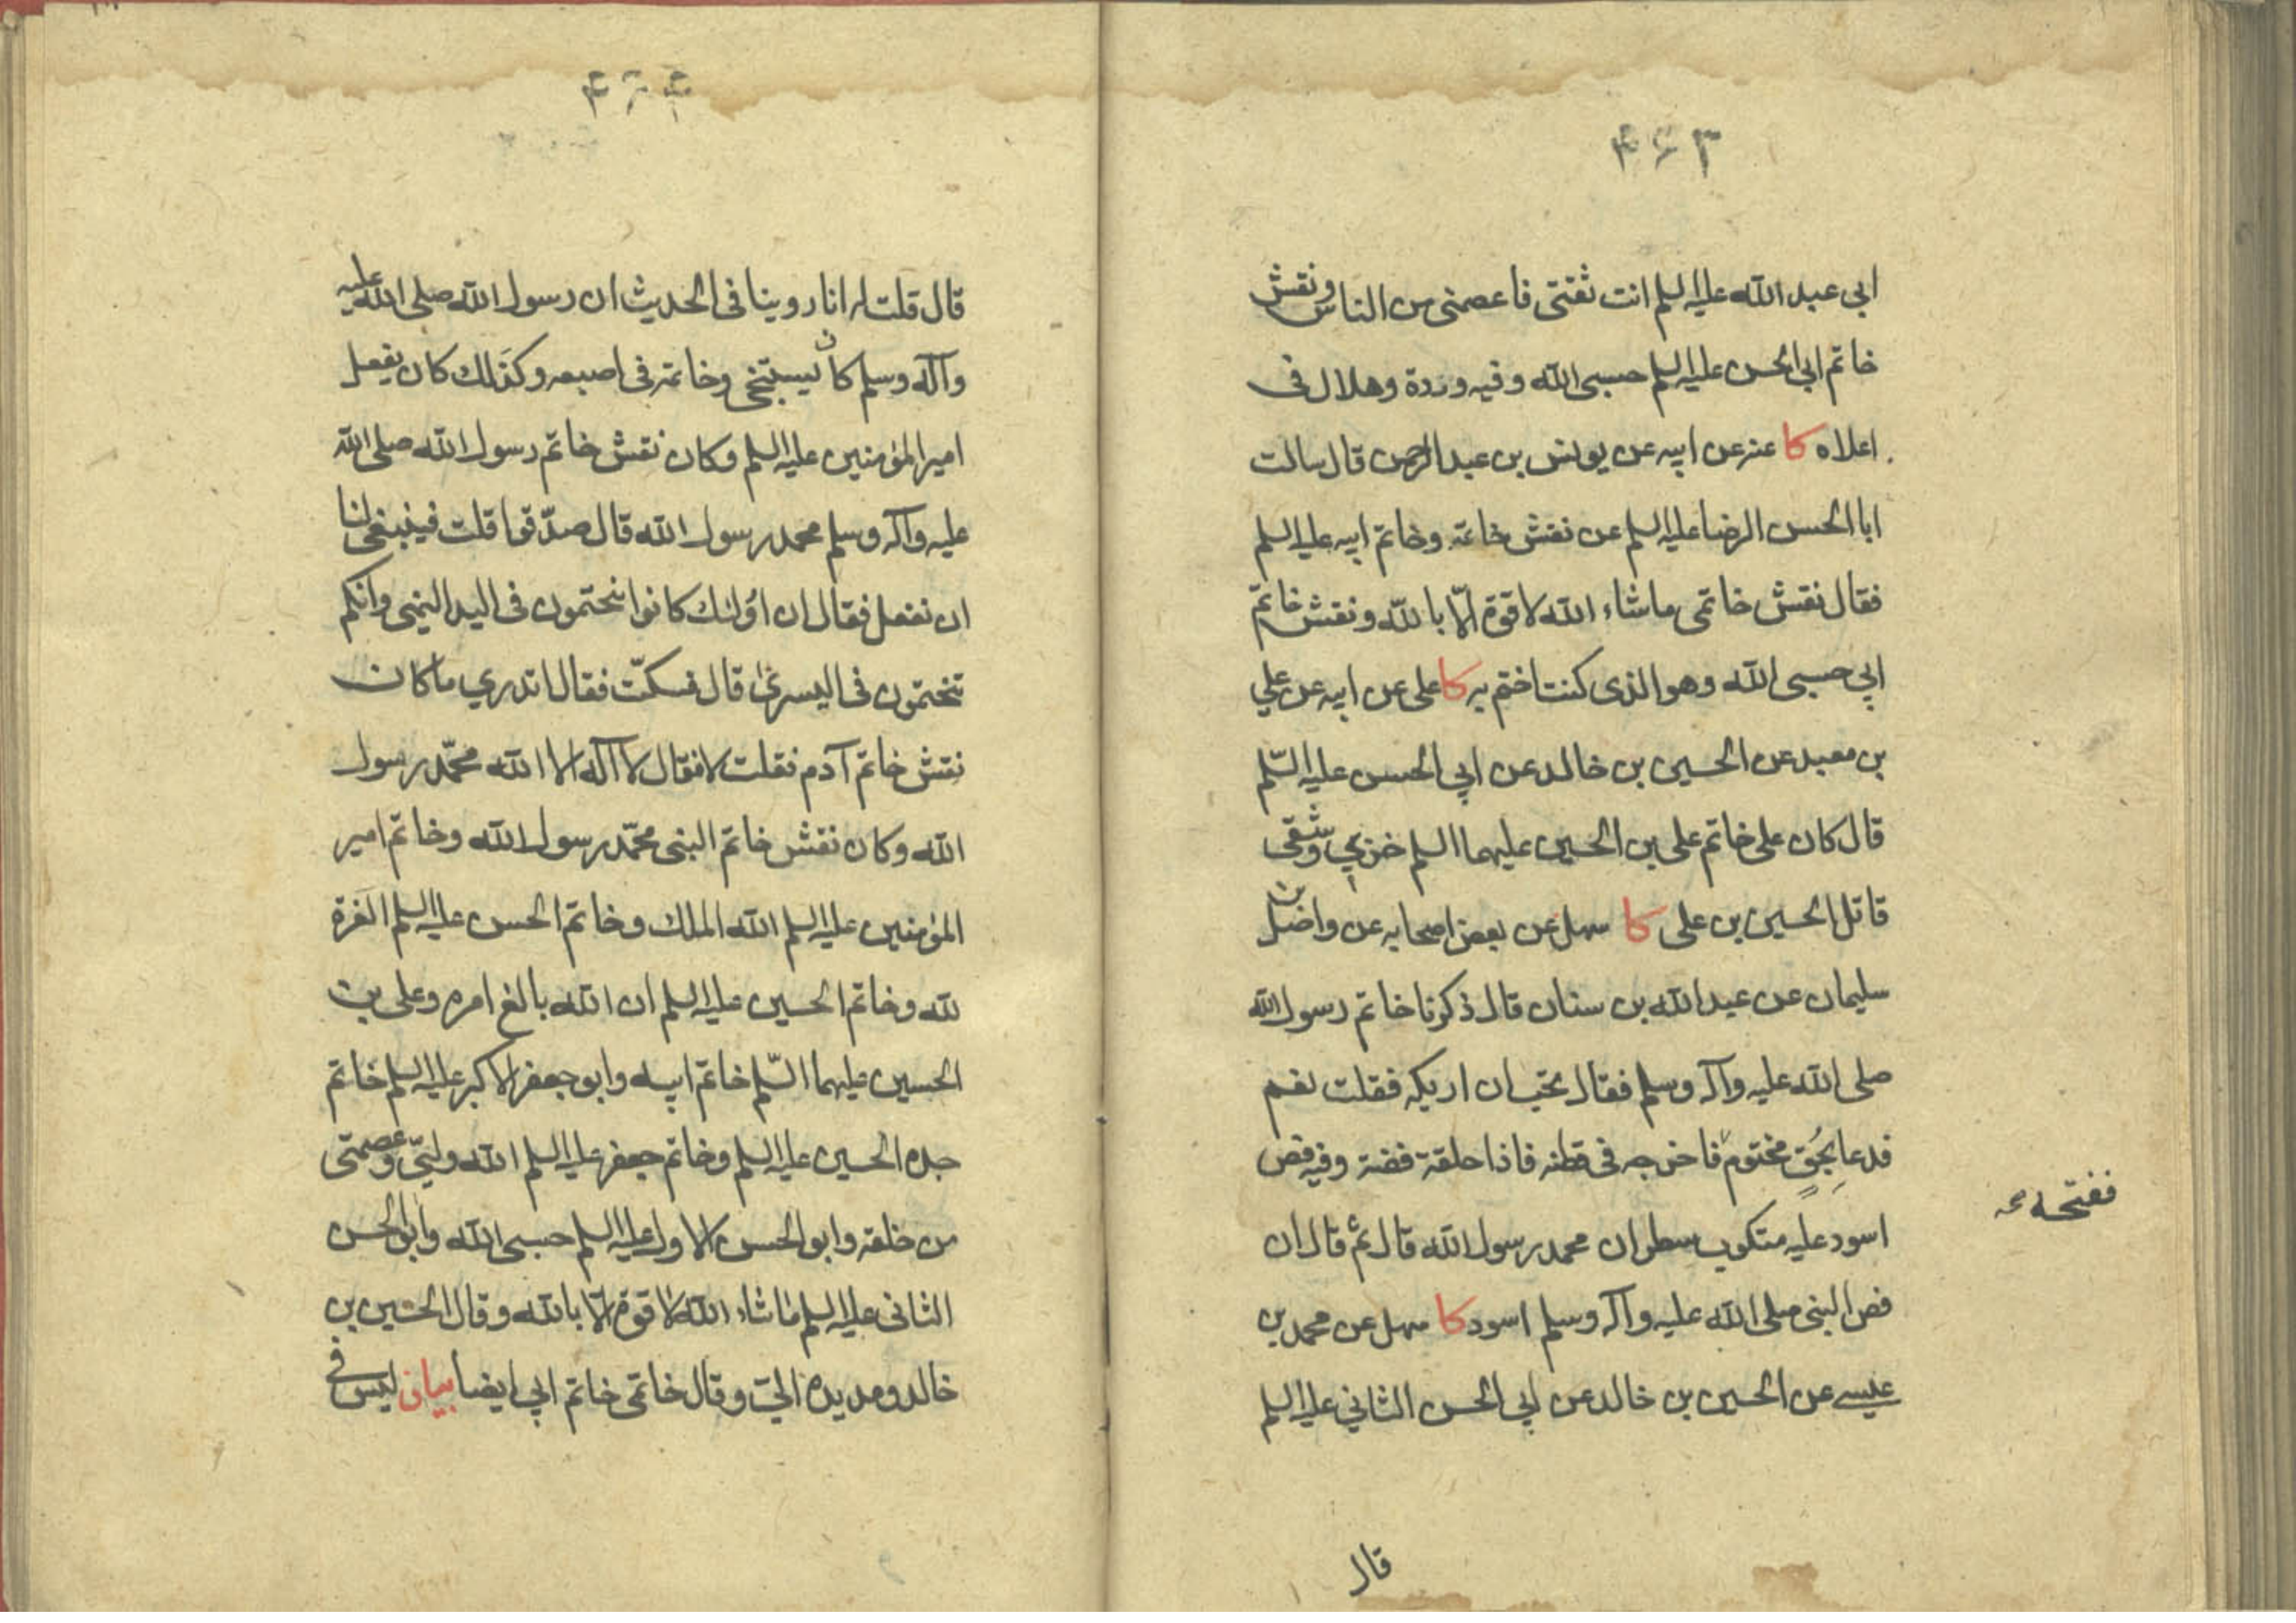 ۴۶۳
ابي عبد الله عليه السلم انت ثقتى فاعصمنى من الناس ونقش
خاتم ابي الحسن عليه السلم حسبى الله وفيه وردة وهلال فى
اعلاه كا عنه عن ابيه عن يونس بن عبد الرحمن قال سالت
ابا الحسن الرضا عليه السلم عن نقش خاتمه وخاتم ابيه عليه السلم
فقال نقش خاتمى ماشاء الله لا قوة الّا بالله ونقش خاتم
ابي حسبى الله وهو الذى كنت اختم به كا على عن ابيه عن علي
بن معبد عن الحسين بن خالد عن ابي الحسن عليه السّلم
قال كان على خاتم على بن الحسين عليهما السلم خزي وشقى
قاتل الحسين بن على كا سهل عن بعض اصحابه عن واصل بن
سليمان عن عبد الله بن سنان قال ذكرنا خاتم رسول الله
صلى الله عليه وآله وسلم فقال تحب ان اريكه فقلت نعم
فدعا بحُقٍ مختوم فاخرجه فى قطنه فاذا حلقة فضة وفيه فص
ففتحه
اسود عليه متكوب سطران محمد رسول الله قال ثم قال ان
فص النبى صلى الله عليه وآله وسلم اسود كا سهل عن محمد بن
عيسے عن الحسين بن خالد عن ابي الحسن الثاني عليه السلم
قال
۴۶۴
قال قلت له انا روينا فى الحديث ان رسول الله صلى الله عليه
وآله وسلم كان يستنجى وخاتمه فى اصبعه وكذلك كان يفعل
امير المؤمنين عليه السلم وكان نقش خاتم رسول الله صلى الله
عليه وآله وسلم محمد رسول الله قال صدّقوا قلت فينبغى لنا
ان نفعل فقال ان اولئك كانوا يتختمون فى اليد اليمنى وانكم
تختمون فى اليسرىٰ قال فسكتّ فقال اتدري ما كان
نقش خاتم آدم فقلت لا فقال لا آله الا الله محمّد رسول
الله وكان نقش خاتم النبى محمّد رسول الله وخاتم امير
المؤمنين عليه السلم الله الملك وخاتم الحسن عليه السلم العزة
لله وخاتم الحسين عليه السلم ان الله بالغ امره وعلى بن
الحسين عليهما السّلم خاتم ابيه وابو جعفر الاكبر عليه السلم خاتم
جده الحسين عليه السلم وخاتم جعفر عليه السلم الله وليّى وعصمتى
من خلقه وابو الحسن الاول عليه السلم حسبى الله وابو الحسن
الثانى عليه السلم ماشاء الله لا قوة الّا بالله وقال الحسين بن
خالد ومد يده الىّ وقال خاتمى خاتم ابي ايضا بيان ليس فى